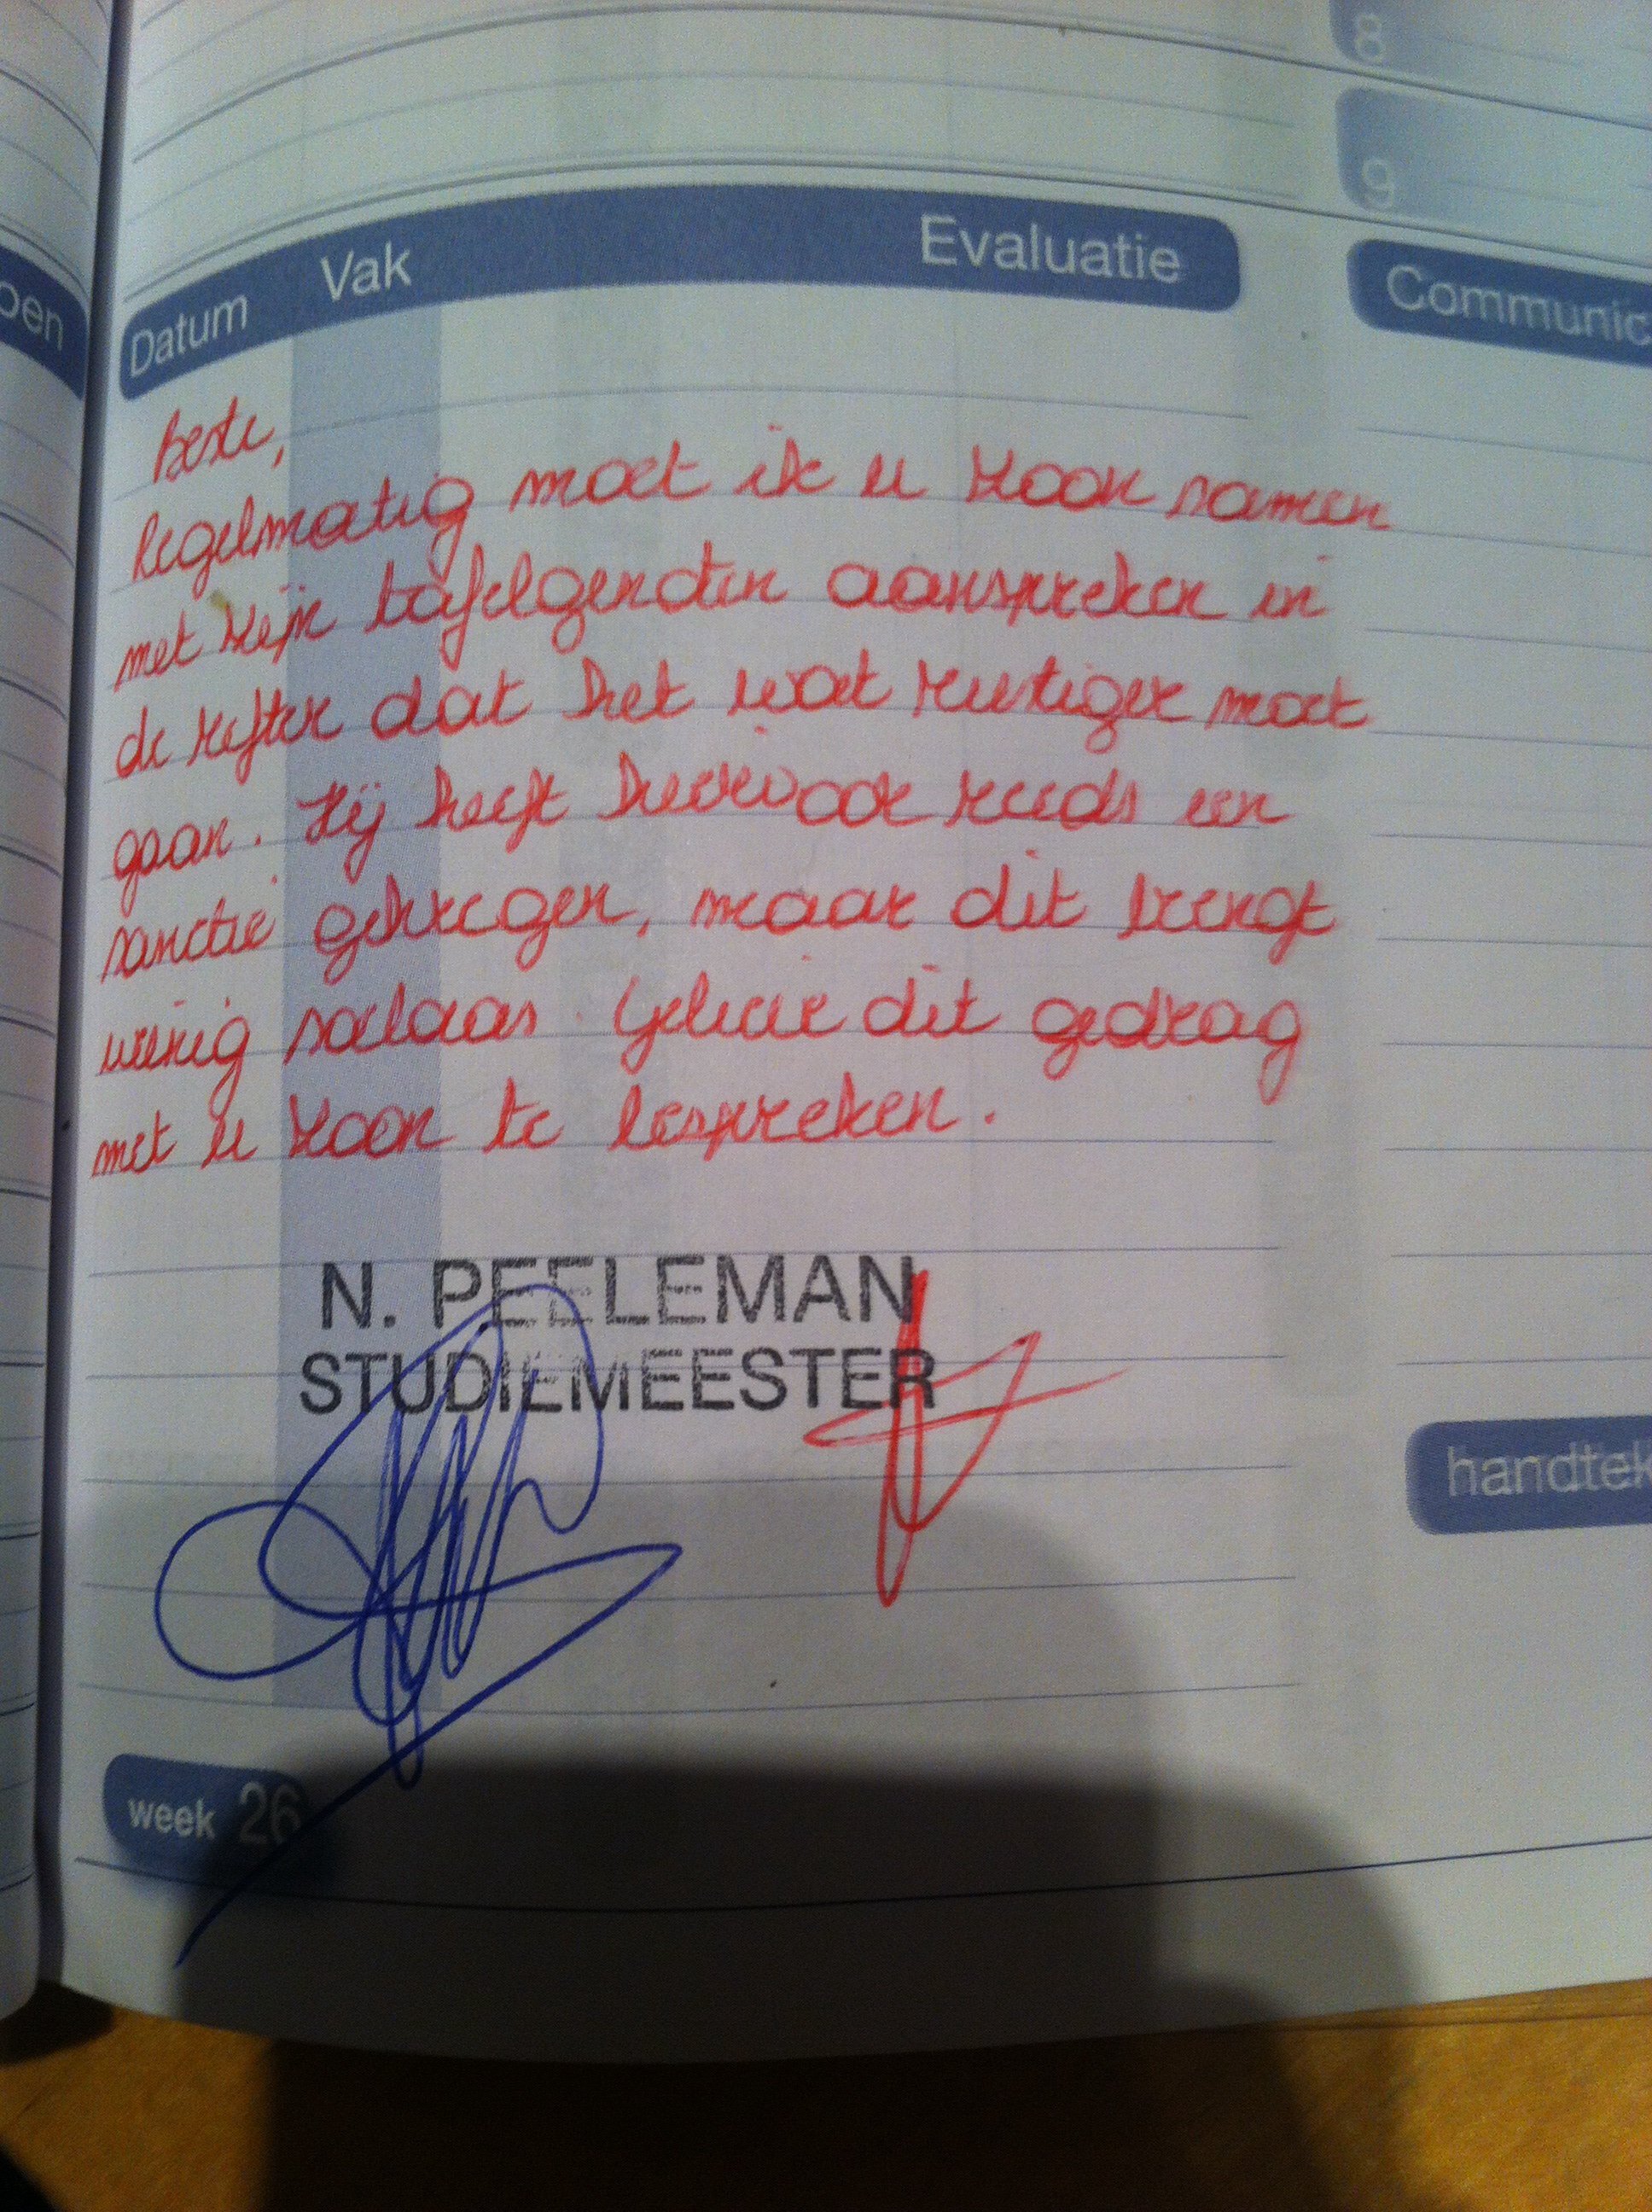 8
9
oen
Datum Vak Evaluatie
Communic
Beste,
Regelmatig moet ik u zoon samen
met zijn tafelgenoten aanspreken in
de refter dat het wat rustiger moet
gaan. Hij heeft hiervoor ook reeds een
sanctie gekregen, maar dit brengt
weinig soelaas. Gelieve dit gedrag
met u zoon te bespreken.
N. PEELEMAN
STUDIEMEESTER
handtek
week 26